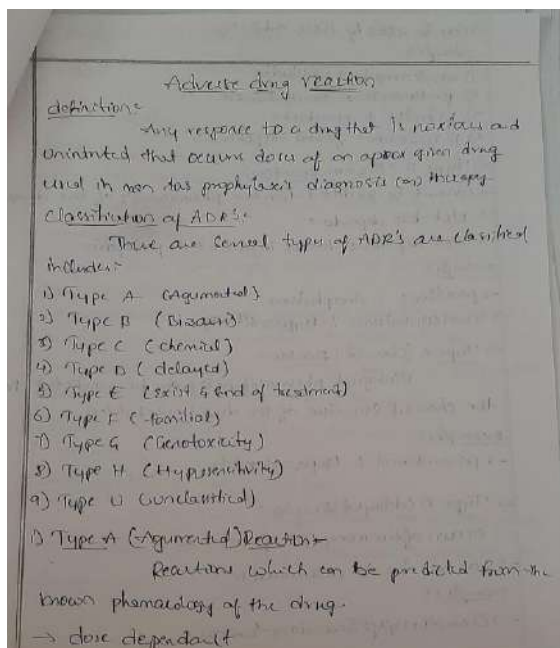 Adverse drug reaction
definition:-
Any response to a drug that is noxious and
unintnted that occurs doses of an given drug
used in man das prophylaxis diagnosis (or) therapy
Classification of ADR's:-
There are types of ADR's are clasified
includes:-
1) Type A (Agumented)
2) Type B (Bizarr)
3) Type C (chemical)
4) Type D (delayed)
5) Type E (Exist & End of treatment)
6) Type F (familial)
7) Type G (Genotoxicity)
8) Type H (Hypusensitivity)
9) Type U (unclassitical)
1) Type A (Agumented) Reaction:-
Reactions which can be predicted from the
known phamacology of the drug.
→ dose dependault